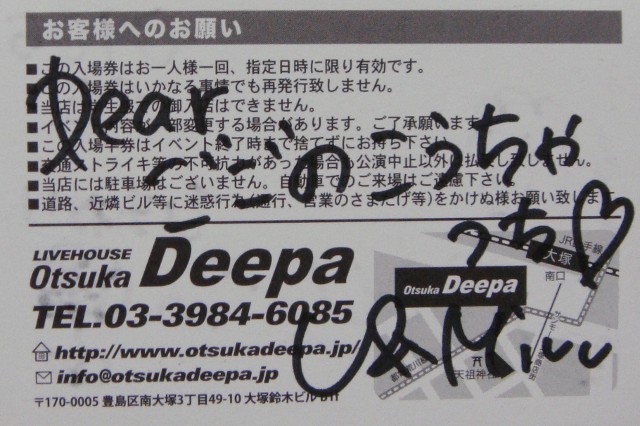 お客様へのお願い
■この入場券はお一人様一回、指定日時に限り有効です。
■この入場券はいかなる事情でも再発行致しません。
■当店は学生服での御入店はできません。
■イベント内容が一部変更する場合があります。ご了承願います。
■この入場半券はイベント終了時まで捨てずにお持ち下さい。
■交通ストライキ等の不可抗力があった場合も公演中止以外に払戻し致しません。
■当店には駐車場はございません。自動車でのご来場はご遠慮下さい。
■道路、近隣ビル等に迷惑行為(通行、営業のさまたげ等)をかけぬ様お願い致します
Dear
こじのこうちゃ
っち♡
LIVEHOUSE
Otsuka Deepa
TEL.03-3984-6085
http://www.otsukadeepa.jp/
info@otsukadeepa.jp
〒170-0005 豊島区南大塚3丁目49-10 大塚鈴木ビル B1f
JR山手線
大塚
南口
Otsuka Deepa
天祖神社